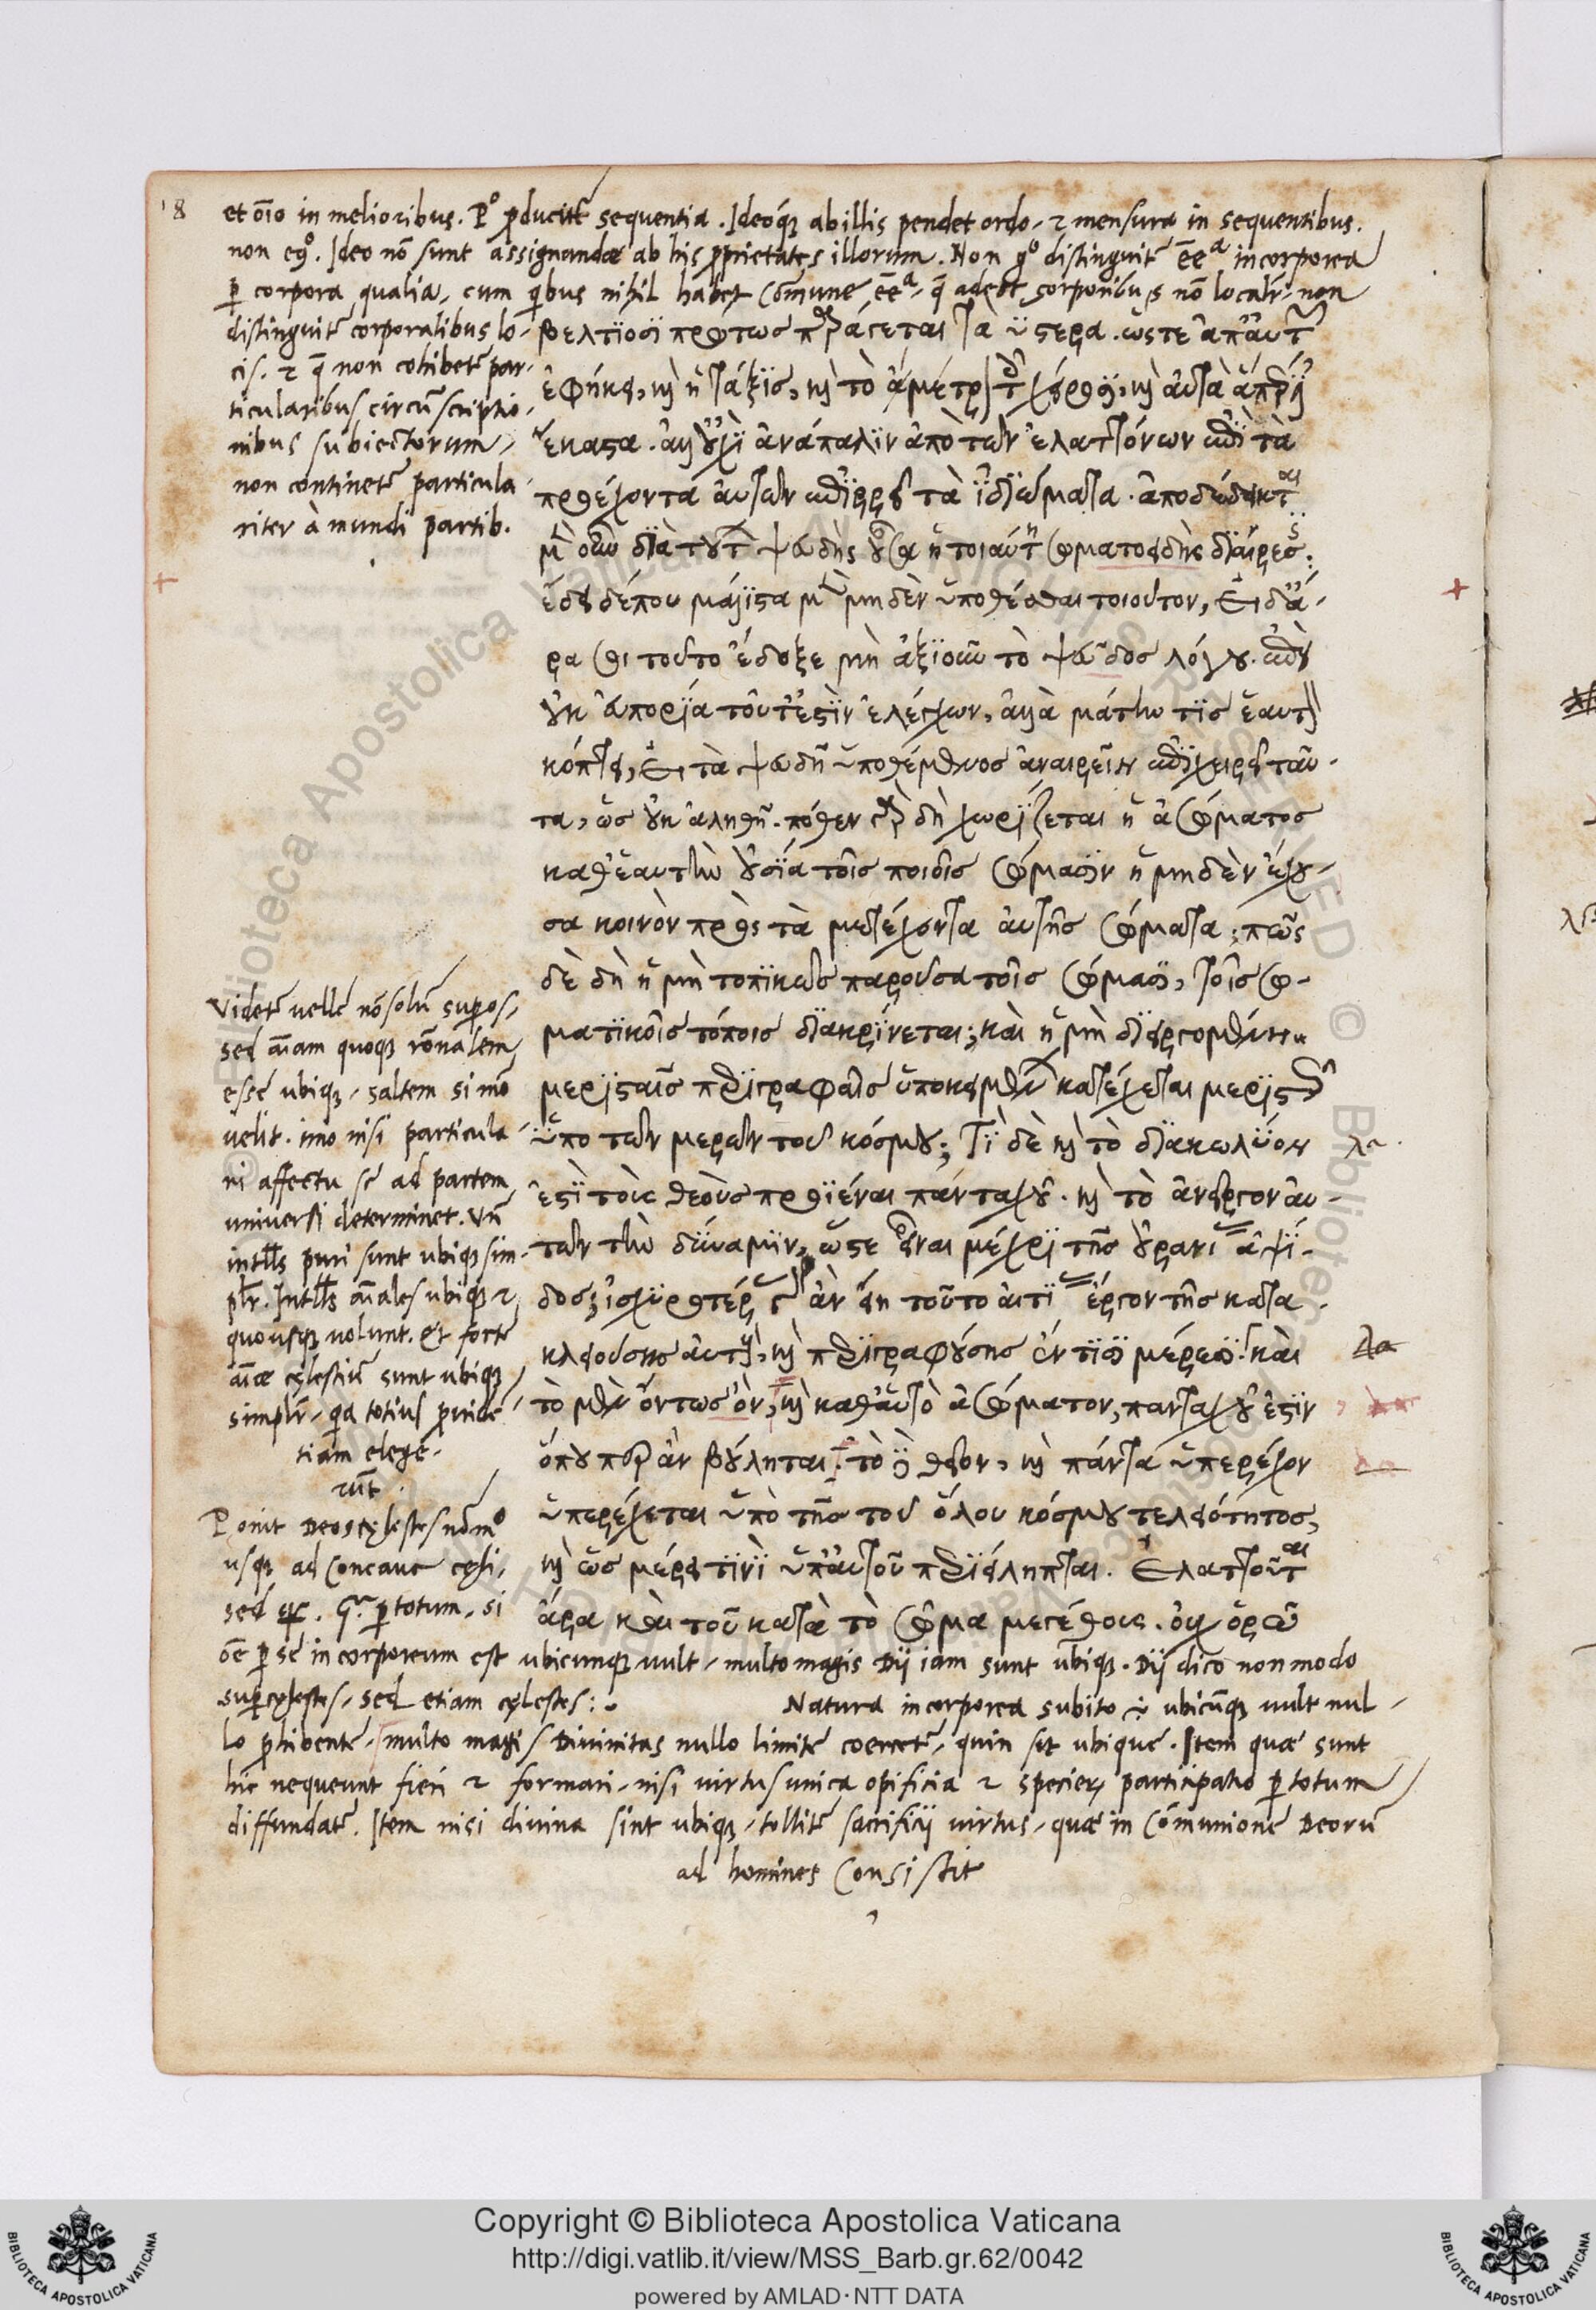 18
et oīo in melioribus. Pº ꝓducūt᷑ sequentia. Ideoq́ꝫ ab illis pendet ordo, ⁊ mensura in sequentibus.
non eqº. Ideo nō sunt assignandæ ab his ꝓprietates illorum. Non gº distinguit᷑ eēª incorporea
ꝑ corpora qualia, cum qibus nihil habet cōmune eēª, q̄ adest corporibus nō localr̄, non
distinguit᷑ corporalibus lo-
cis. ⁊ q̄ non cohibet᷑ par-
ticularibus circū scriptio-
nibus subiectorum,
non continet᷑ particula
riter à mundi partib.
βελτίοσι πρώτως παράγεται τὰ ὕστερα. ὥστε ἀπ' αὐτῶν
ἐφήκει, καὶ ἡ τάξις, καὶ τὸ μέτρον τῶν χειρόνων, καὶ αὐτὰ ἅπερ ἐστὶν
ἕκαστα. ἀλλ' οὐχὶ ἀνάπαλιν ἀπὸ τῶν ἐλαττόνων ἐπὶ τὰ
προέχοντα αὐτῶν ἐπιρρεῖ τὰ ἰδιώματα. ἀποδέδεικται
μὲν οὖν διὰ τούτων ψευδὴς οὖσα ἡ τοιαύτη σωματοειδὴς διαίρεσις.
ἔδει δέ που μάλιστα μὲν μηδὲν ὑποθέσθαι τοιοῦτον, εἰ δ' ἄ-
ρα σοι τοῦτο ἔδοξε μὴ ἀξιοῦν τὸ ψεῦδος λόγου.
οὐκ εὐπορία τοῦτ' ἐστὶν ἐλέγχων, ἀλλὰ μάτην τις ἑαυτὸν
κόπτει, εἰ τὰ ψευδῆ ὑποθέμενος ἀναιρεῖν ἐπιχειρεῖ ταῦ-
τα, ὡς οὐκ ἀληθῆ. πόθεν γὰρ δὴ χωρίζεται ἡ ἀσώματος
καθ' ἑαυτὴν οὐσία τοῖς ποιοῖς σώμασιν ἡ μηδὲν ἔχου-
σα κοινὸν πρὸς τὰ μετέχοντα αὐτῆς σώματα; πῶς
δὲ δὴ ἡ μὴ τοπικῶς παροῦσα τοῖς σώμασι, τοῖς σω-
ματικοῖς τόποις διακρίνεται; καὶ ἡ μὴ διειργομένη
μερισταῖς περιγραφαῖς ὑποκειμένων κατέχεται μεριστῶς
ὑπὸ τῶν μερῶν τοῦ κόσμου; τί δὲ καὶ τὸ διακωλῦον
ἐστὶ τοὺς θεοὺς προϊέναι πανταχοῦ. καὶ τὸ ἀνεῖργον αὐ-
τῶν τὴν δύναμιν, ὥστε εἶναι μέχρι τῆς οὐρανίας ἁψῖ-
δος; ἰσχυροτέρας γὰρ ἂν εἴη τοῦτο αἰτίας ἔργον τῆς κατα-
κλειούσης αὐτούς, καὶ περιγραφούσης ἔν τισι μέρεσι. καὶ
τὸ μὲν ὄντως ὄν, καὶ καθ' αὑτὸ ἀσώματον, πανταχοῦ ἐστιν
ὅπου περ ἂν βούληται. τὸ δὲ θεῖον, καὶ πάντα ὑπερέχον
ὑπερέχεται ὑπὸ τῆς τοῦ ὅλου κόσμου τελειότητος,
καὶ ὡς μέρει τινὶ ὑπ' αὐτοῦ περιείληπται. ἐλαττοῦται
ἄρα καὶ τοῦ κατὰ τὸ σῶμα μεγέθους. οὐχ ὁρῶ
Videt᷑ uelle nō solū suꝑos,
sed aīam quoqꝫ rōnalem
esse ubiqꝫ, saltem si mō
uelit. imo nisi particula
ri affectu se ad partem
uniuersi determinet. Vn̄
intll's puri sunt ubiqꝫ sim-
plr̄. Intll's aīales ubiqꝫ ⁊
quousqꝫ uolunt. et forte
aīæ cęlestiū sunt ubiqꝫ
simplr̄, qa totius ꝓuidē-
tiam elege-
rūt.
Ponit Deos cęlestes nō mº
usqꝫ ad concaue cęli,
sed ꝑ totum, si
oē ꝑ se incorporeum est ubicunqꝫ uult, multo magis Dij iam sunt ubiqꝫ. Dij dico non modo
supercęlestes, sed etiam cęlestes:
Natura incorporea subito ubicūqꝫ uult nul-
lo ꝓhibente, multo magis Diuinitas nullo limite coercet᷑, quin sit ubique. Item quæ sunt
hic nequeunt fieri ⁊ formari, nisi uirtus unica opificia ⁊ specierum participatio ꝑ totum
diffundat᷑. Item nisi diuina sint ubiqꝫ, tollit᷑ sacrificij uirtus, quæ in cōmunione Deorū
ad homines consistit
Copyright © Biblioteca Apostolica Vaticana
http://digi.vatlib.it/view/MSS_Barb.gr.62/0042
powered by AMLAD·NTT DATA
BIBLIOTECA APOSTOLICA VATICANA
BIBLIOTECA APOSTOLICA VATICANA